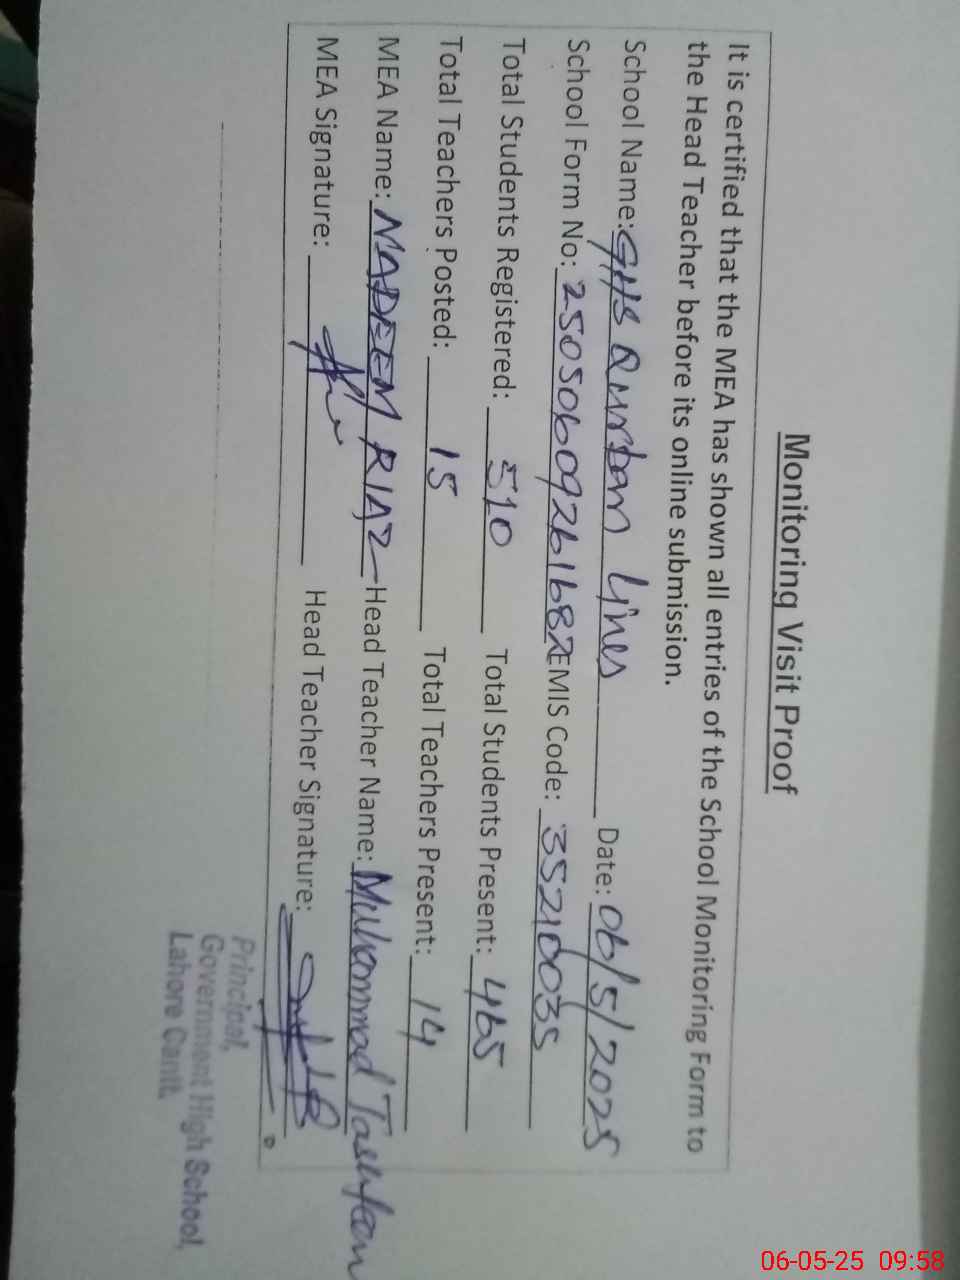 Monitoring Visit Proof
It is certified that the MEA has shown all entries of the School Monitoring Form to
the Head Teacher before its online submission.
School Name: GHS Qurban Lines Date: 06/5/2025
School Form No: 25050609261682 EMIS Code: 35210035
Total Students Registered: 510 Total Students Present: 465
Total Teachers Posted: 15 Total Teachers Present: 14
MEA Name: NADEEM RIAZ Head Teacher Name: Muhammad
MEA Signature: Head Teacher Signature:
Principal,
Government High School,
Lahore Cantt.
06-05-25 09:58